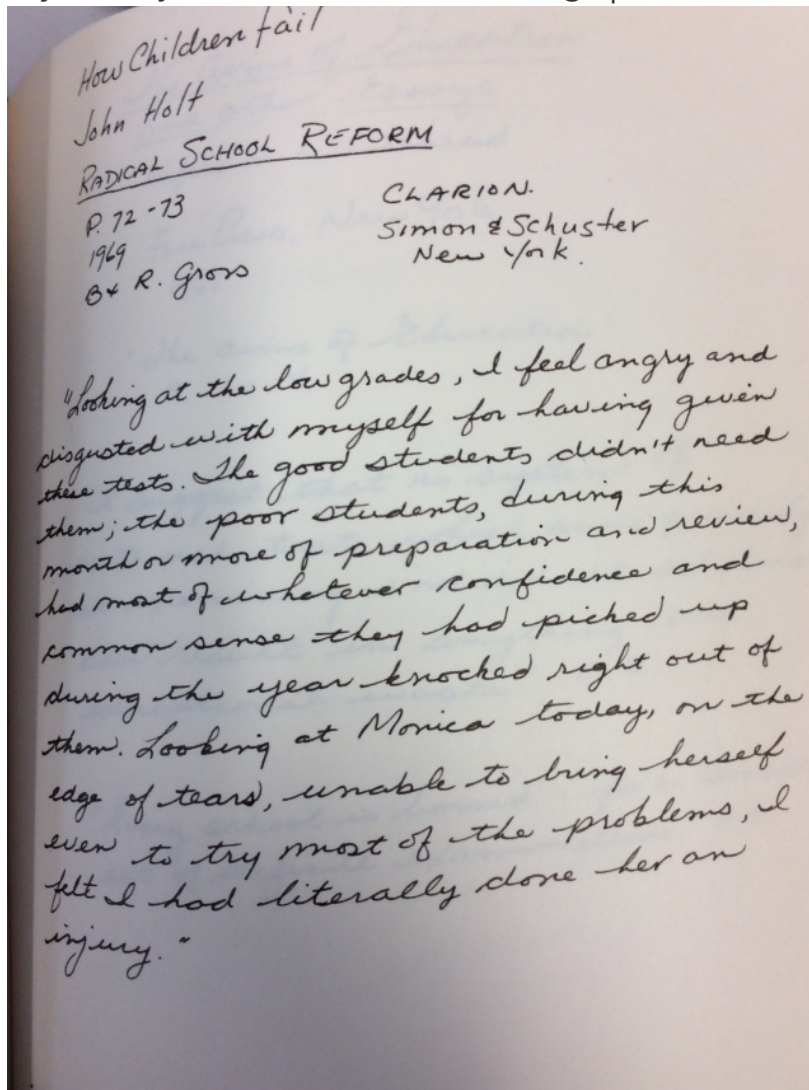 How Children Fail
John Holt
RADICAL SCHOOL REFORM
P. 72-73
1969
B & R. Gross
CLARION.
Simon & Schuster
New York.
"Looking at the low grades, I feel angry and
disgusted with myself for having given
these tests. The good students didn't need
them; the poor students, during this
month or more of preparation and review,
had most of whatever confidence and
common sense they had picked up
during the year knocked right out of
them. Looking at Monica today, on the
edge of tears, unable to bring herself
even to try most of the problems, I
felt I had literally done her an
injury."